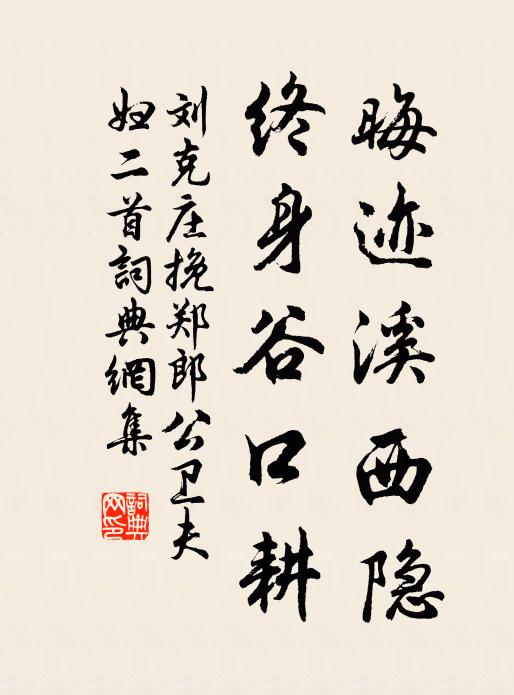 晦迹溪西隐
终身谷口耕
刘克庄挽郑郎公卫夫
妞二首詞典網集
詞典网印